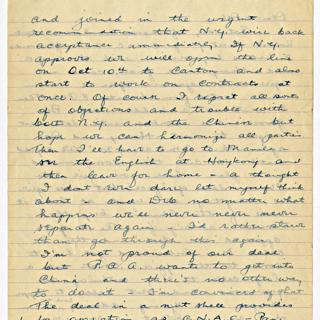 and joined in the urgent
recommendation that N.Y. wire back
acceptance immediately. If N.Y.
approves we will open the line
on Oct 10th to Canton and also
start to work on contracts at
once. Of course I expect all sorts
of objections and trouble with
both N.Y. and the Chinese but
hope we can harmonize all parties
Then I'll have to go to Manila -
see the English at Hongkong - and
then leave for home - a thought
I don't even dare let myself think
about - and no matter what
happens we'll never never never
separate again - I'd rather starve
than go through this again.
I'm not proud of our deal
but P.A.A. wants to get into
China and there's no other way
to do it - I'm convinced of that
The deal in a nut shell provides
operation as C.N.A.C.